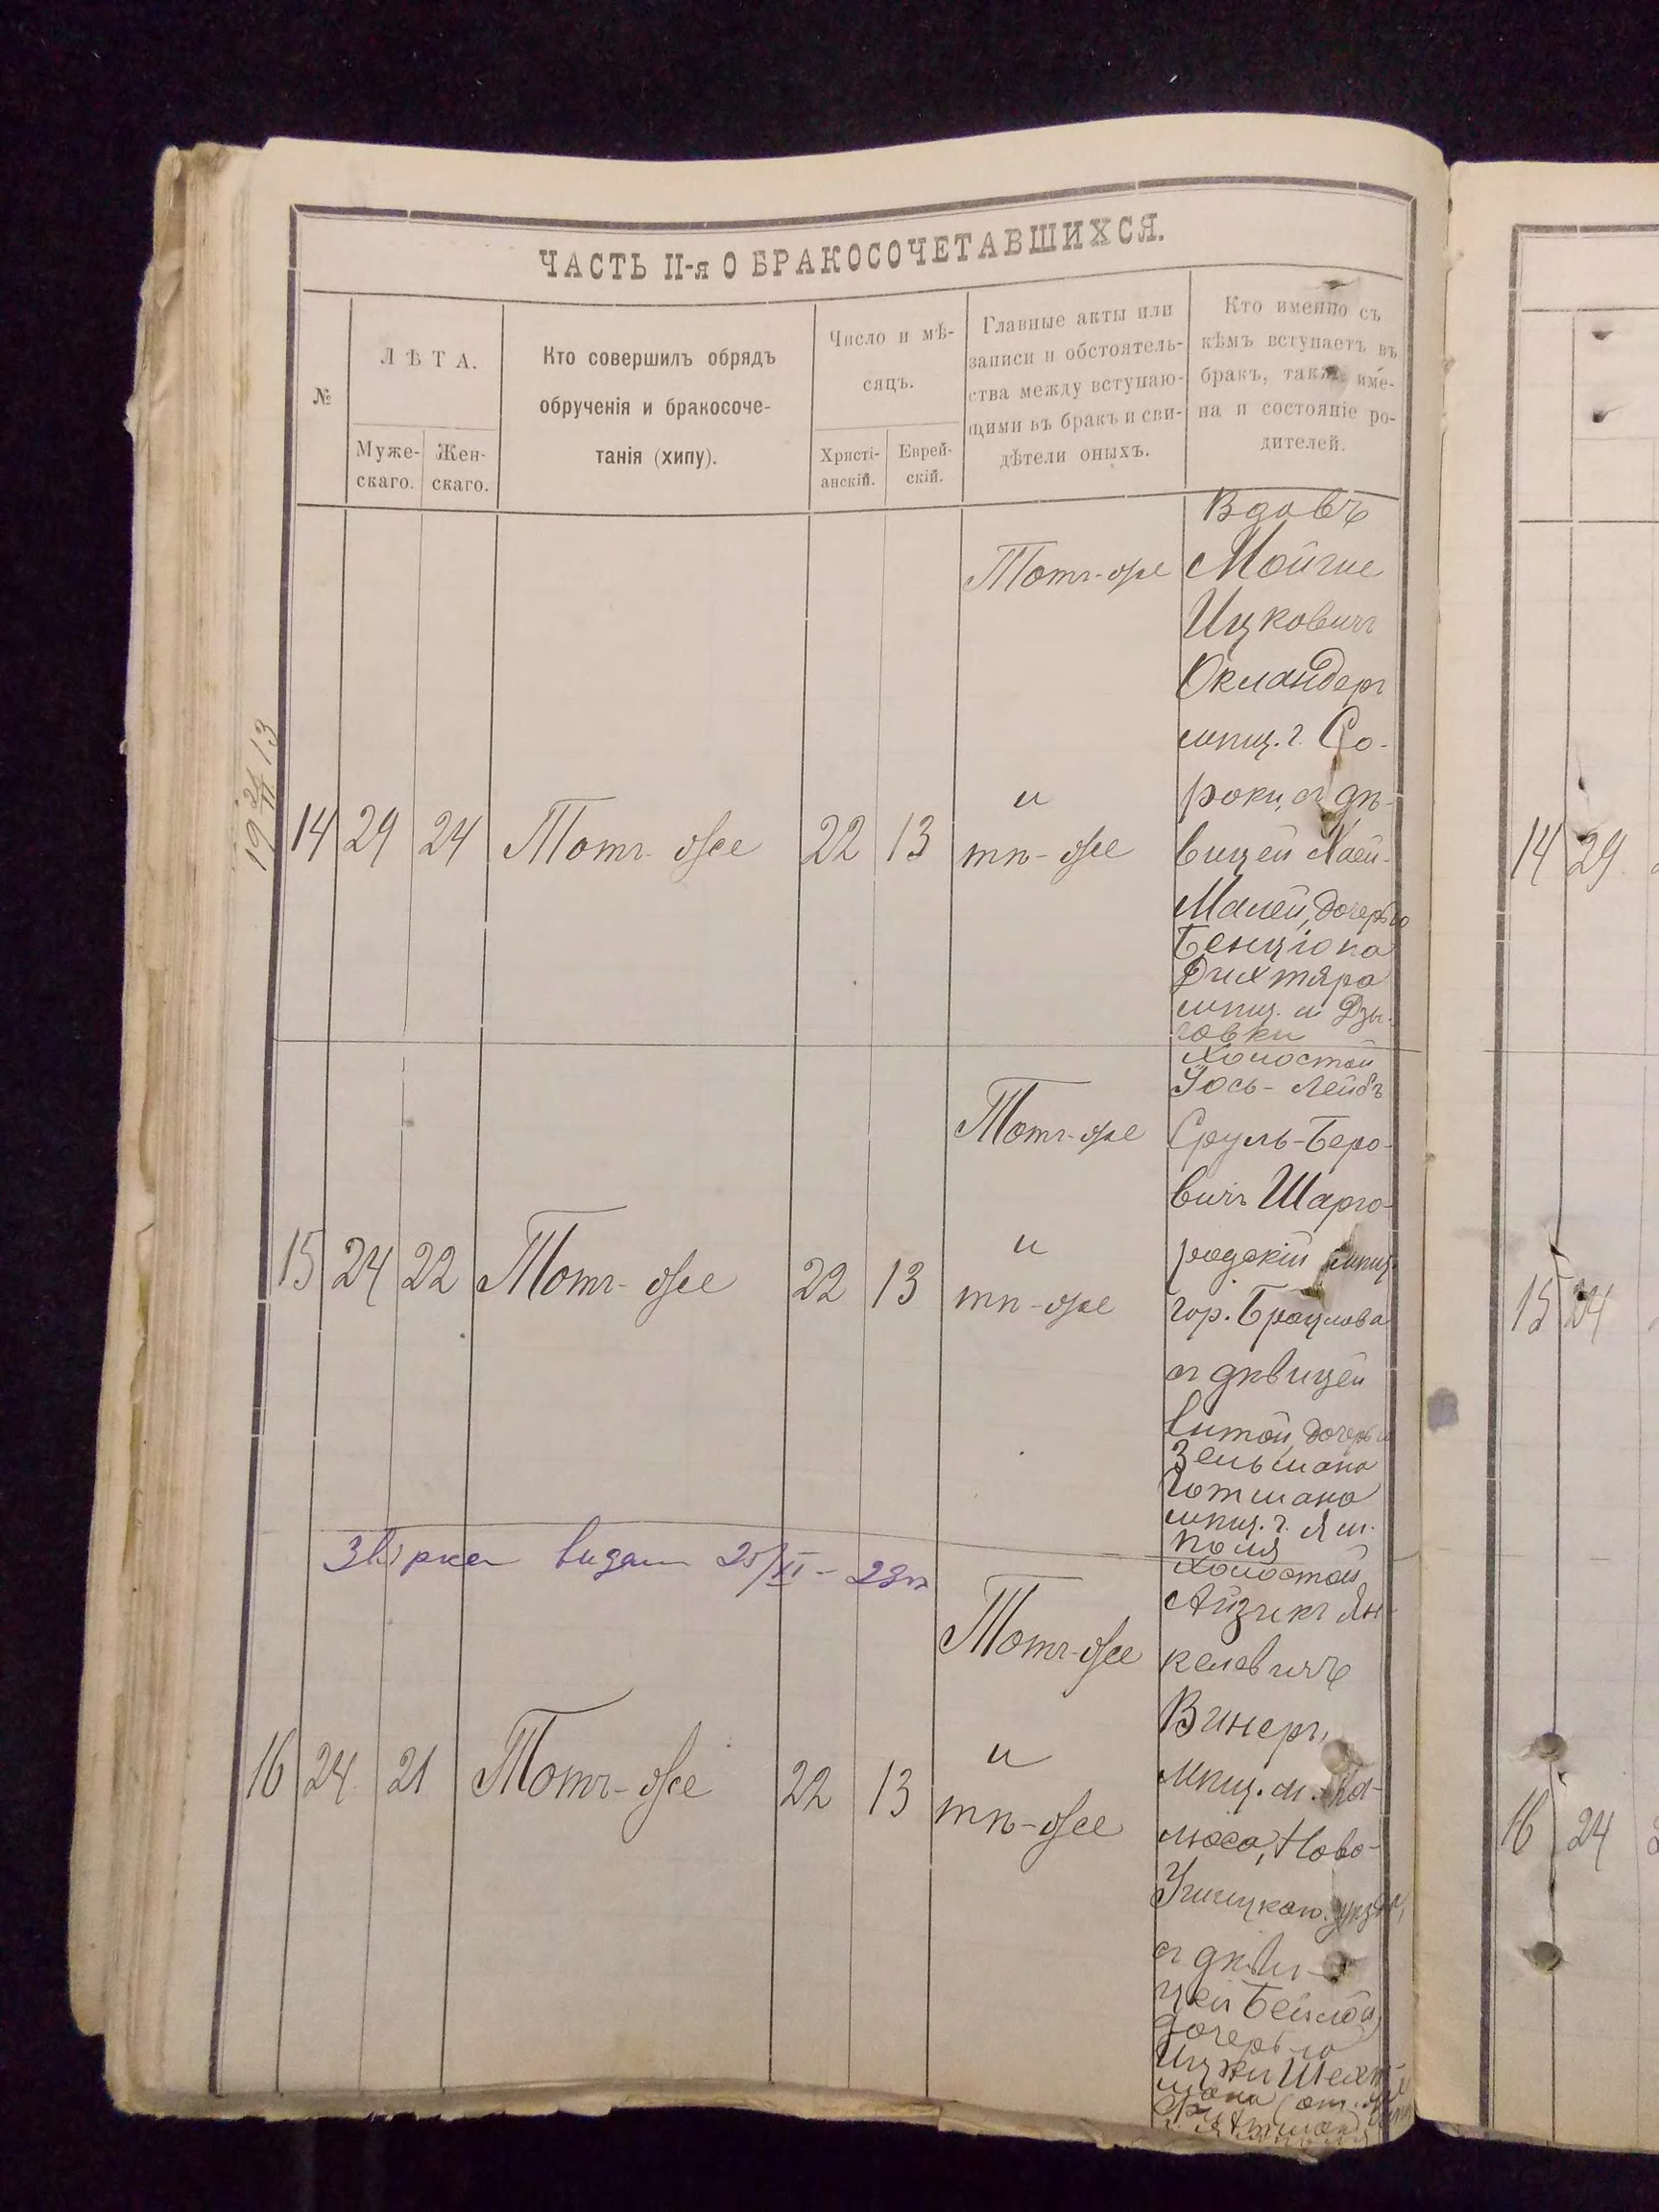 ЧАСТЬ II-я О БРАКОСОЧЕТАВШИХСЯ.
№
ЛѢТА.
Муже-
скаго.
Жен-
скаго.
Кто совершилъ обрядъ
обрученія и бракосоче-
танія (хипу).
Число и мѣ-
сяцъ.
Христі-
анскій.
Еврей-
скій.
Главные акты или
записи и обстоятель-
ства между вступаю-
щими въ бракъ и сви-
дѣтели оныхъ.
Кто именно съ
кѣмъ вступаетъ въ
бракъ, также име-
на и состояніе ро-
дителей.
14 29 24 Тотъ-же 22 13
Тотъ-же
и
тѣ-же
Вдовъ
Мойше
Ицковичъ
Окландеръ
мѣщ. г. Со-
роки, съ дѣ-
вицей Хаей-
Малей, дочерью
Бенціона
Дихтяра
мѣщ. м. Дзы-
говки
15 24 22 Тотъ-же 22 13
Тотъ-же
и
тѣ-же
Холостой
Іось-Лейбъ
Сруль-Беро-
вичъ Шарго-
родскій мѣщ.
гор. Брацлава
съ дѣвицей
Ентой, дочерью
Зельмана
Готмана
мѣщ. г. Ям-
поля
Звірка видан 25/XI - 23 г
16 24 21 Тотъ-же 22 13
Тотъ-же
и
тѣ-же
Холостой
Айзикъ Ян-
келевичъ
Винеръ,
мѣщ. м. Ка-
люса, Ново-
Ушицкаго уѣзда,
съ дѣви-
цей Бейлой,
дочерью
Ицки Шехт-
мана